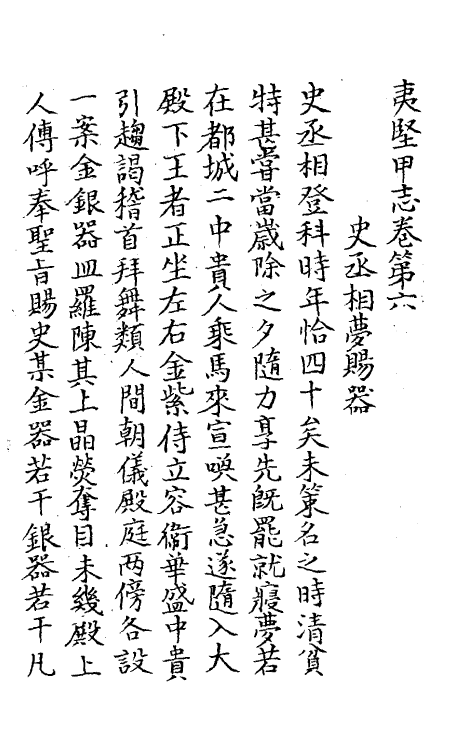 夷堅甲志卷第六
史丞相夢賜器
史丞相登科時年恰四十矣未策名之時清貧
特甚嘗當歲除之夕隨力享先既罷就寢夢若
在都城二中貴人乘馬來宣喚甚急遂隨入大
殿下王者正坐左右金紫侍立容衛華盛中貴
引趨謁稽首拜舞類人間朝儀殿庭两傍各設
一案金銀器皿羅陳其上晶熒奪目未幾殿上
人傳呼奉聖旨賜史某金器若干銀器若干凡